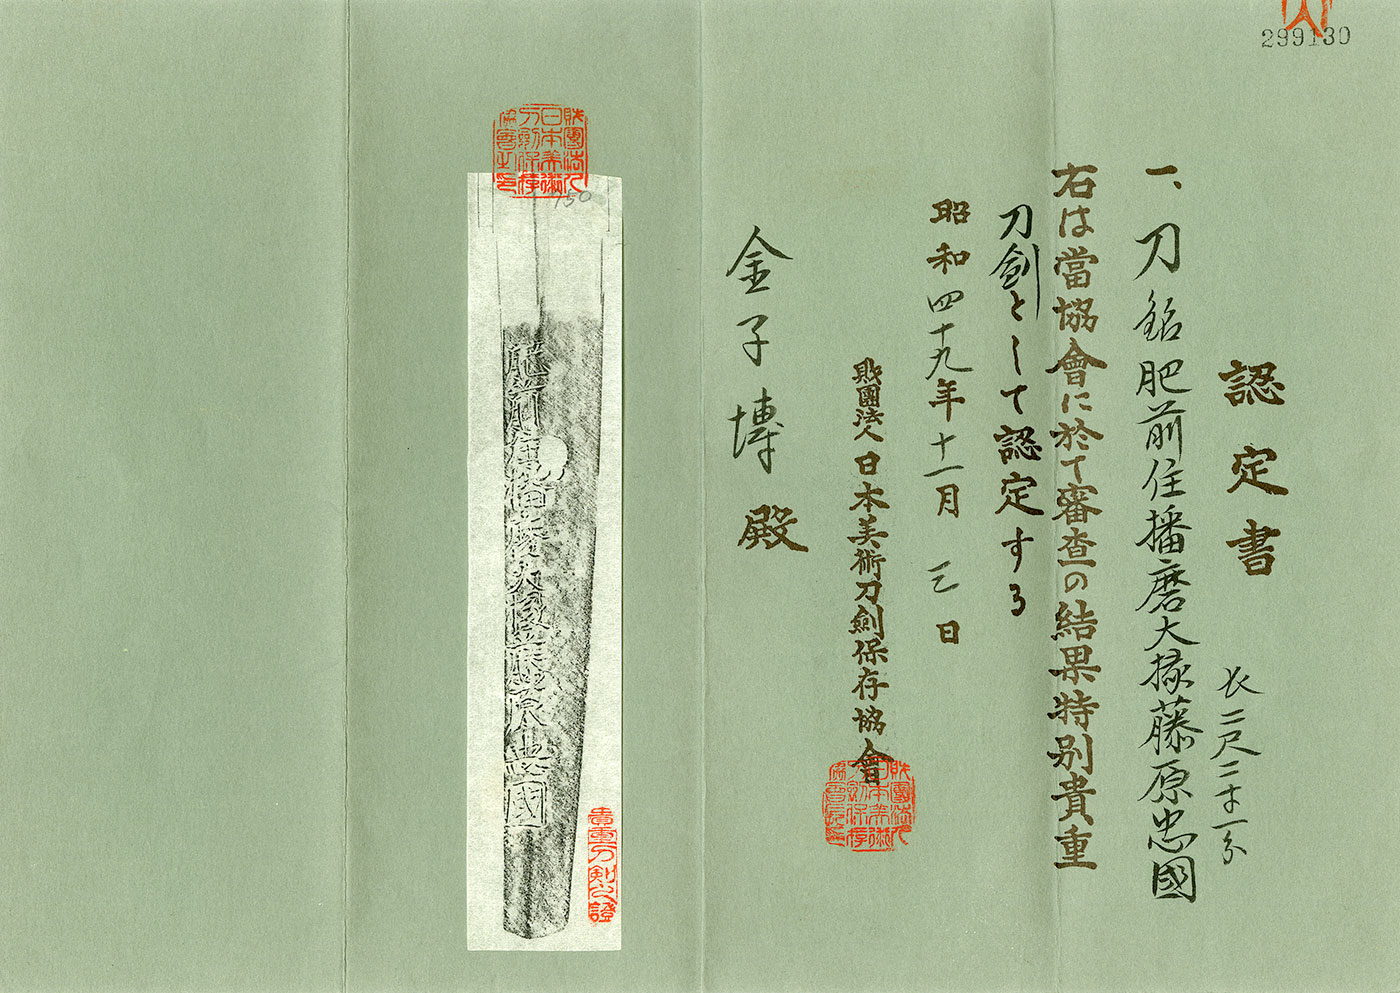 299130
認定書
一、刀 銘 肥前住播磨大掾藤原忠國
長二尺二寸一分
右は當協會に於て審査の結果特別貴重
刀劍として認定する
昭和四十九年十一月三日
財團法人日本美術刀劍保存協會
金子博殿
財團法人
日本美術
刀劍保存
150
肥前住播磨大掾藤原忠國
貴重刀剣之證
財團法人
日本美術
刀劍保存